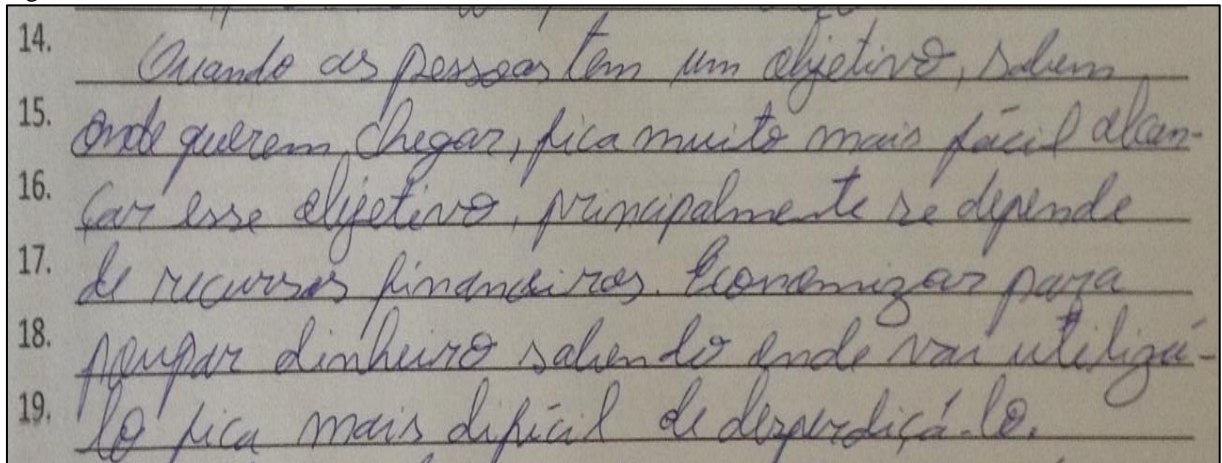 14. Quando as pessoas tem um objetivo, sabem
15. onde querem chegar, fica muito mais fácil alcan-
16. çar esse objetivo, principalmente se depende
17. de recursos financeiros. Economizar para
18. poupar dinheiro sabendo onde vai utilizá-
19. lo fica mais difícil de desperdiçá-lo.